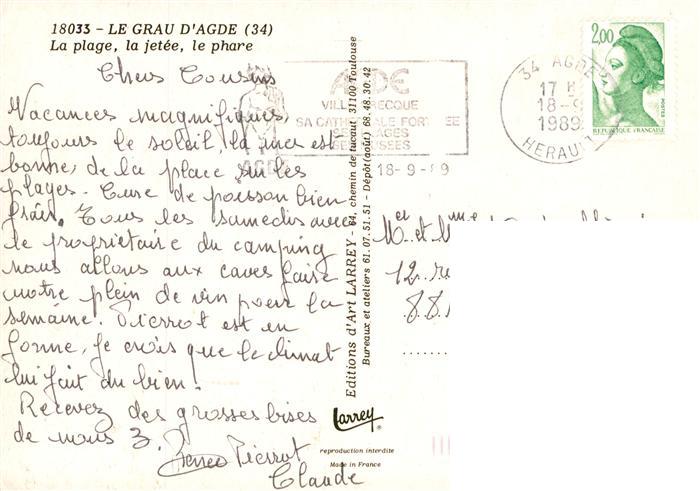 18033 - LE GRAU D'AGDE (34)
La plage, la jetée, le phare
Chers Cousins
Vacances magnifiques,
toujours le soleil, la mer est
bonne, de la place sur les
plages. Cure de poisson bien
frais. Tous les samedis avec
le propriétaire du camping
nous allons aux caves faire
notre plein de vin pour la
semaine. Pierrot est en
forme, je crois que le climat
lui fait du bien!
Recevez des grosses bises
de nous 3. Pierrot
Claude
Editions d'Art LARREY - 64, chemin de 31100 Toulouse
Bureaux et ateliers 61.07.51.51 - Dépôt (août) 68.48.30.42
Larrey
reproduction interdite
Made in France
AGDE
VILLE GRECQUE
SA CATHEDRALE FORTIFIEE
SES PLAGES
SES MUSEES
AGDE
18-9-89
34 AGDE
17 H
18-9
1989
HERAULT
2,00
POSTES
REPUBLIQUE FRANÇAISE
et
12
88